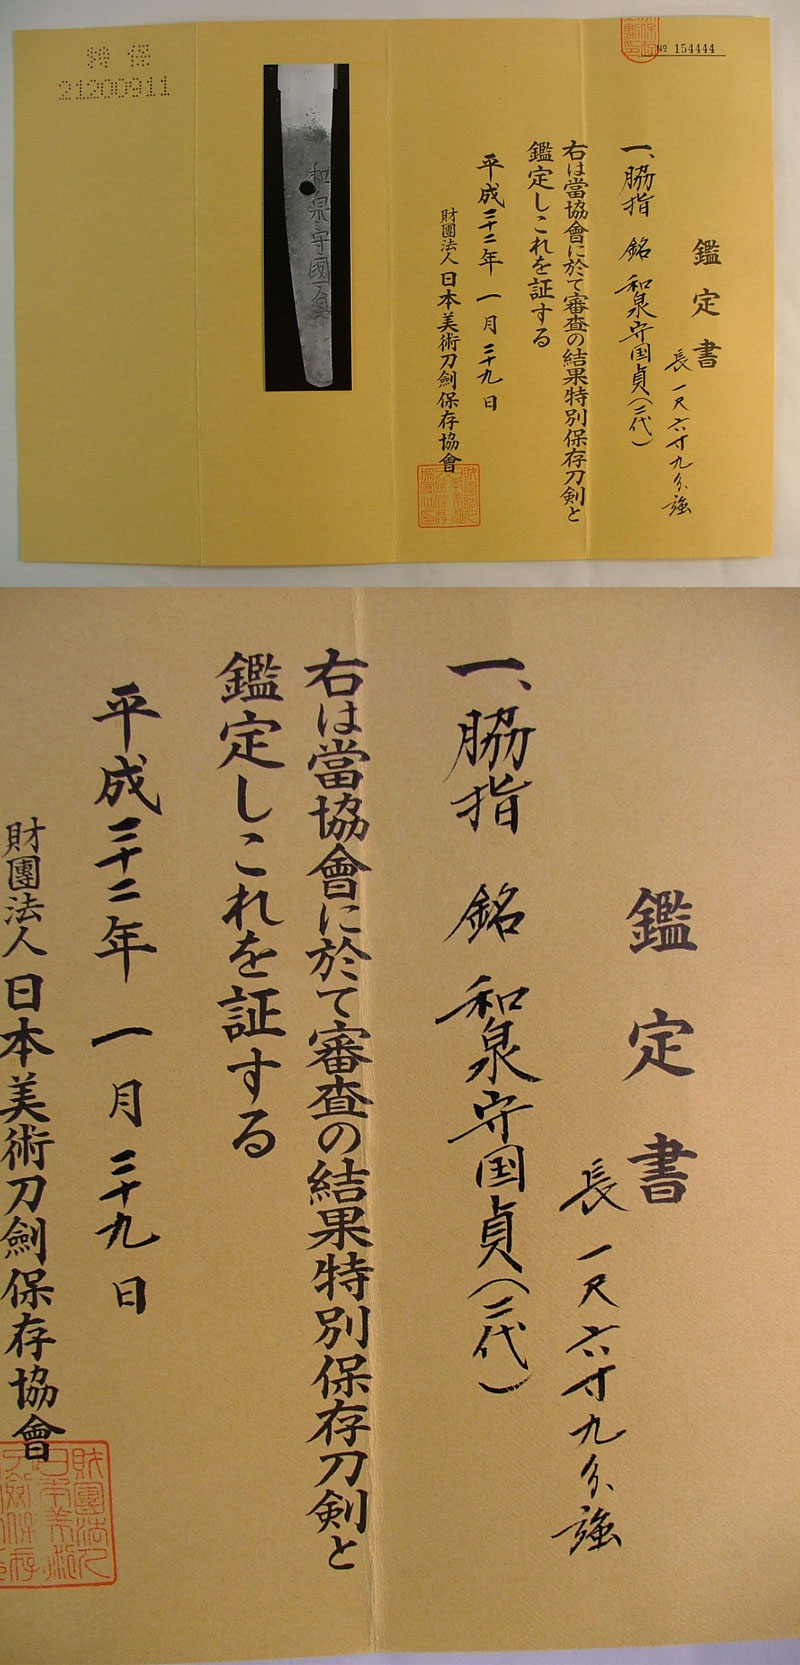 特保
21200911
和泉守國貞
No 154444
鑑定書
長一尺六寸九分強
一、脇指 銘 和泉守国貞(二代)
右は當協會に於て審査の結果特別保存刀剣と
鑑定しこれを証する
平成二十二年 一月 二十九日
財團法人 日本美術刀劍保存協會
鑑定書
長一尺六寸九分強
一、脇指 銘 和泉守国貞(二代)
右は當協會に於て審査の結果特別保存刀剣と
鑑定しこれを証する
平成二十二年 一月 二十九日
財團法人 日本美術刀劍保存協會